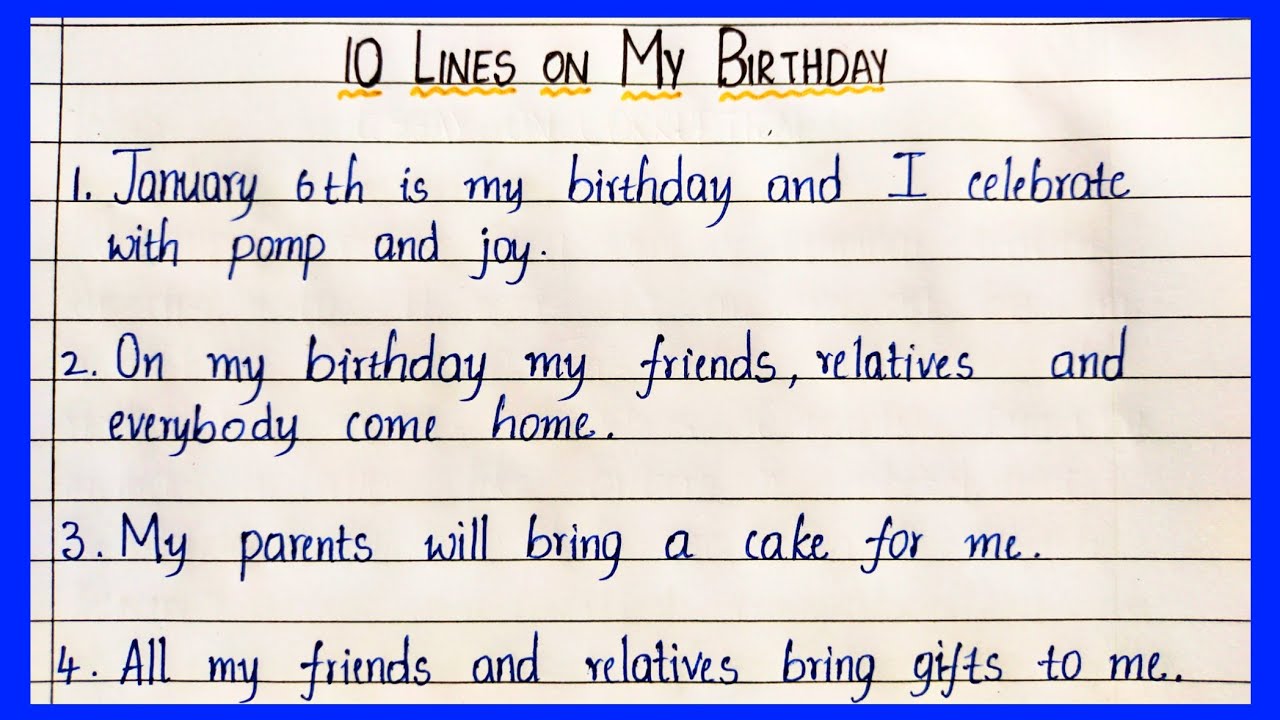 10 LINES ON MY BIRTHDAY
1. January 6th is my birthday and I celebrate
with pomp and joy.
2. On my birthday my friends, relatives and
everybody come home.
3. My parents will bring a cake for me.
4. All my friends and relatives bring gifts to me.